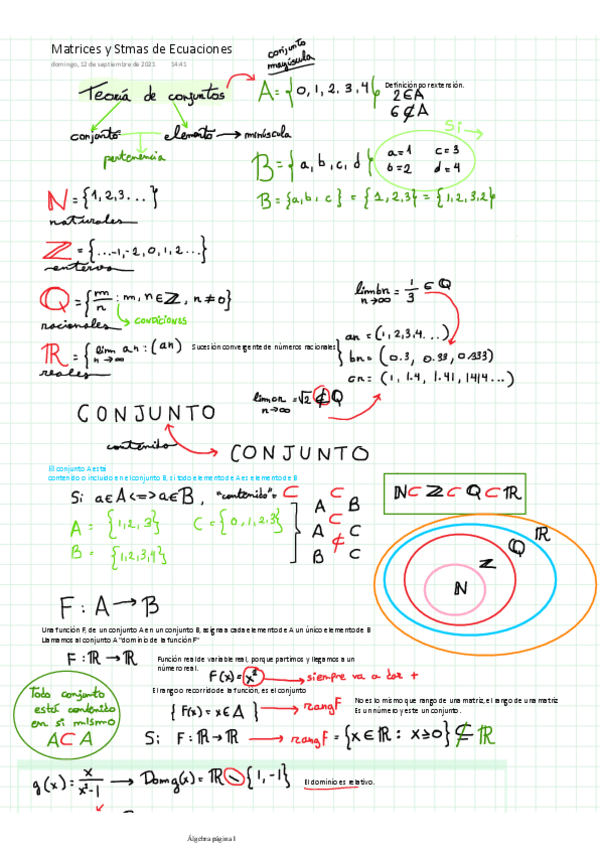 Matrices y Stmas de Ecuaciones
domingo, 12 de septiembre de 2021 14:41
conjunto
mayúscula
Teoría de conjuntos
A = { 0, 1, 2, 3, 4 }
Definición por extensión.
2 ∈ A
6 ∉ A
conjunto
elemento → minúscula
pertenencia
Si →
B = { a, b, c, d }
a = 1 c = 3
b = 2 d = 4
B = {a, b, c} = {1, 2, 3} = {1, 2, 3, 2}
N = {1, 2, 3 ... }
naturales
Z = {... -1, -2, 0, 1, 2 ... }
enteros
Q = { m/n : m, n ∈ Z, n ≠ 0}
racionales
→ CONDICIONES
lim bn = 1/3 ∈ Q
n→∞
R = { lim an : (an)
n→∞
Sucesión convergente de números racionales
reales
an = (1, 2, 3, 4 ... )
bn = (0.3, 0.33, 0.333)
cn = (1, 1.4, 1.41, 1414 ... )
lim cn = √2 ∉ Q
n→∞
CONJUNTO
contenido
CONJUNTO
El conjunto A está
contenido o incluido en el conjunto B, si todo elemento de A es elemento de B
Si a ∈ A <=> a ∈ B, "contenido" = ⊂
A = {1, 2, 3} C = {0, 1, 2, 3}
B = {1, 2, 3, 4}
A ⊂ B
A ⊂ C
B ⊄ C
N ⊂ Z ⊂ Q ⊂ R
R
Q
Z
N
F : A → B
Una función F, de un conjunto A en un conjunto B, asigna a cada elemento de A un único elemento de B
Llamamos al conjunto A "dominio de la función F"
F : R → R
Función real de variable real, porque partimos y llegamos a un
número real.
F(x) = x² → siempre va a dar +
El rango o recorrido de la función, es el conjunto
{ F(x) = x ∈ A } → rang F
No es lo mismo que rango de una matriz, el rango de una matriz
Es un número y este un conjunto.
Todo conjunto
está contenido
en sí mismo
A ⊂ A
Si F : R → R → rang F = {x ∈ R : x ≥ 0} ⊊ R
g(x) = x/x²-1 → Dom g(x) = R \ {1, -1}
El dominio es relativo.
Álgebra página 1